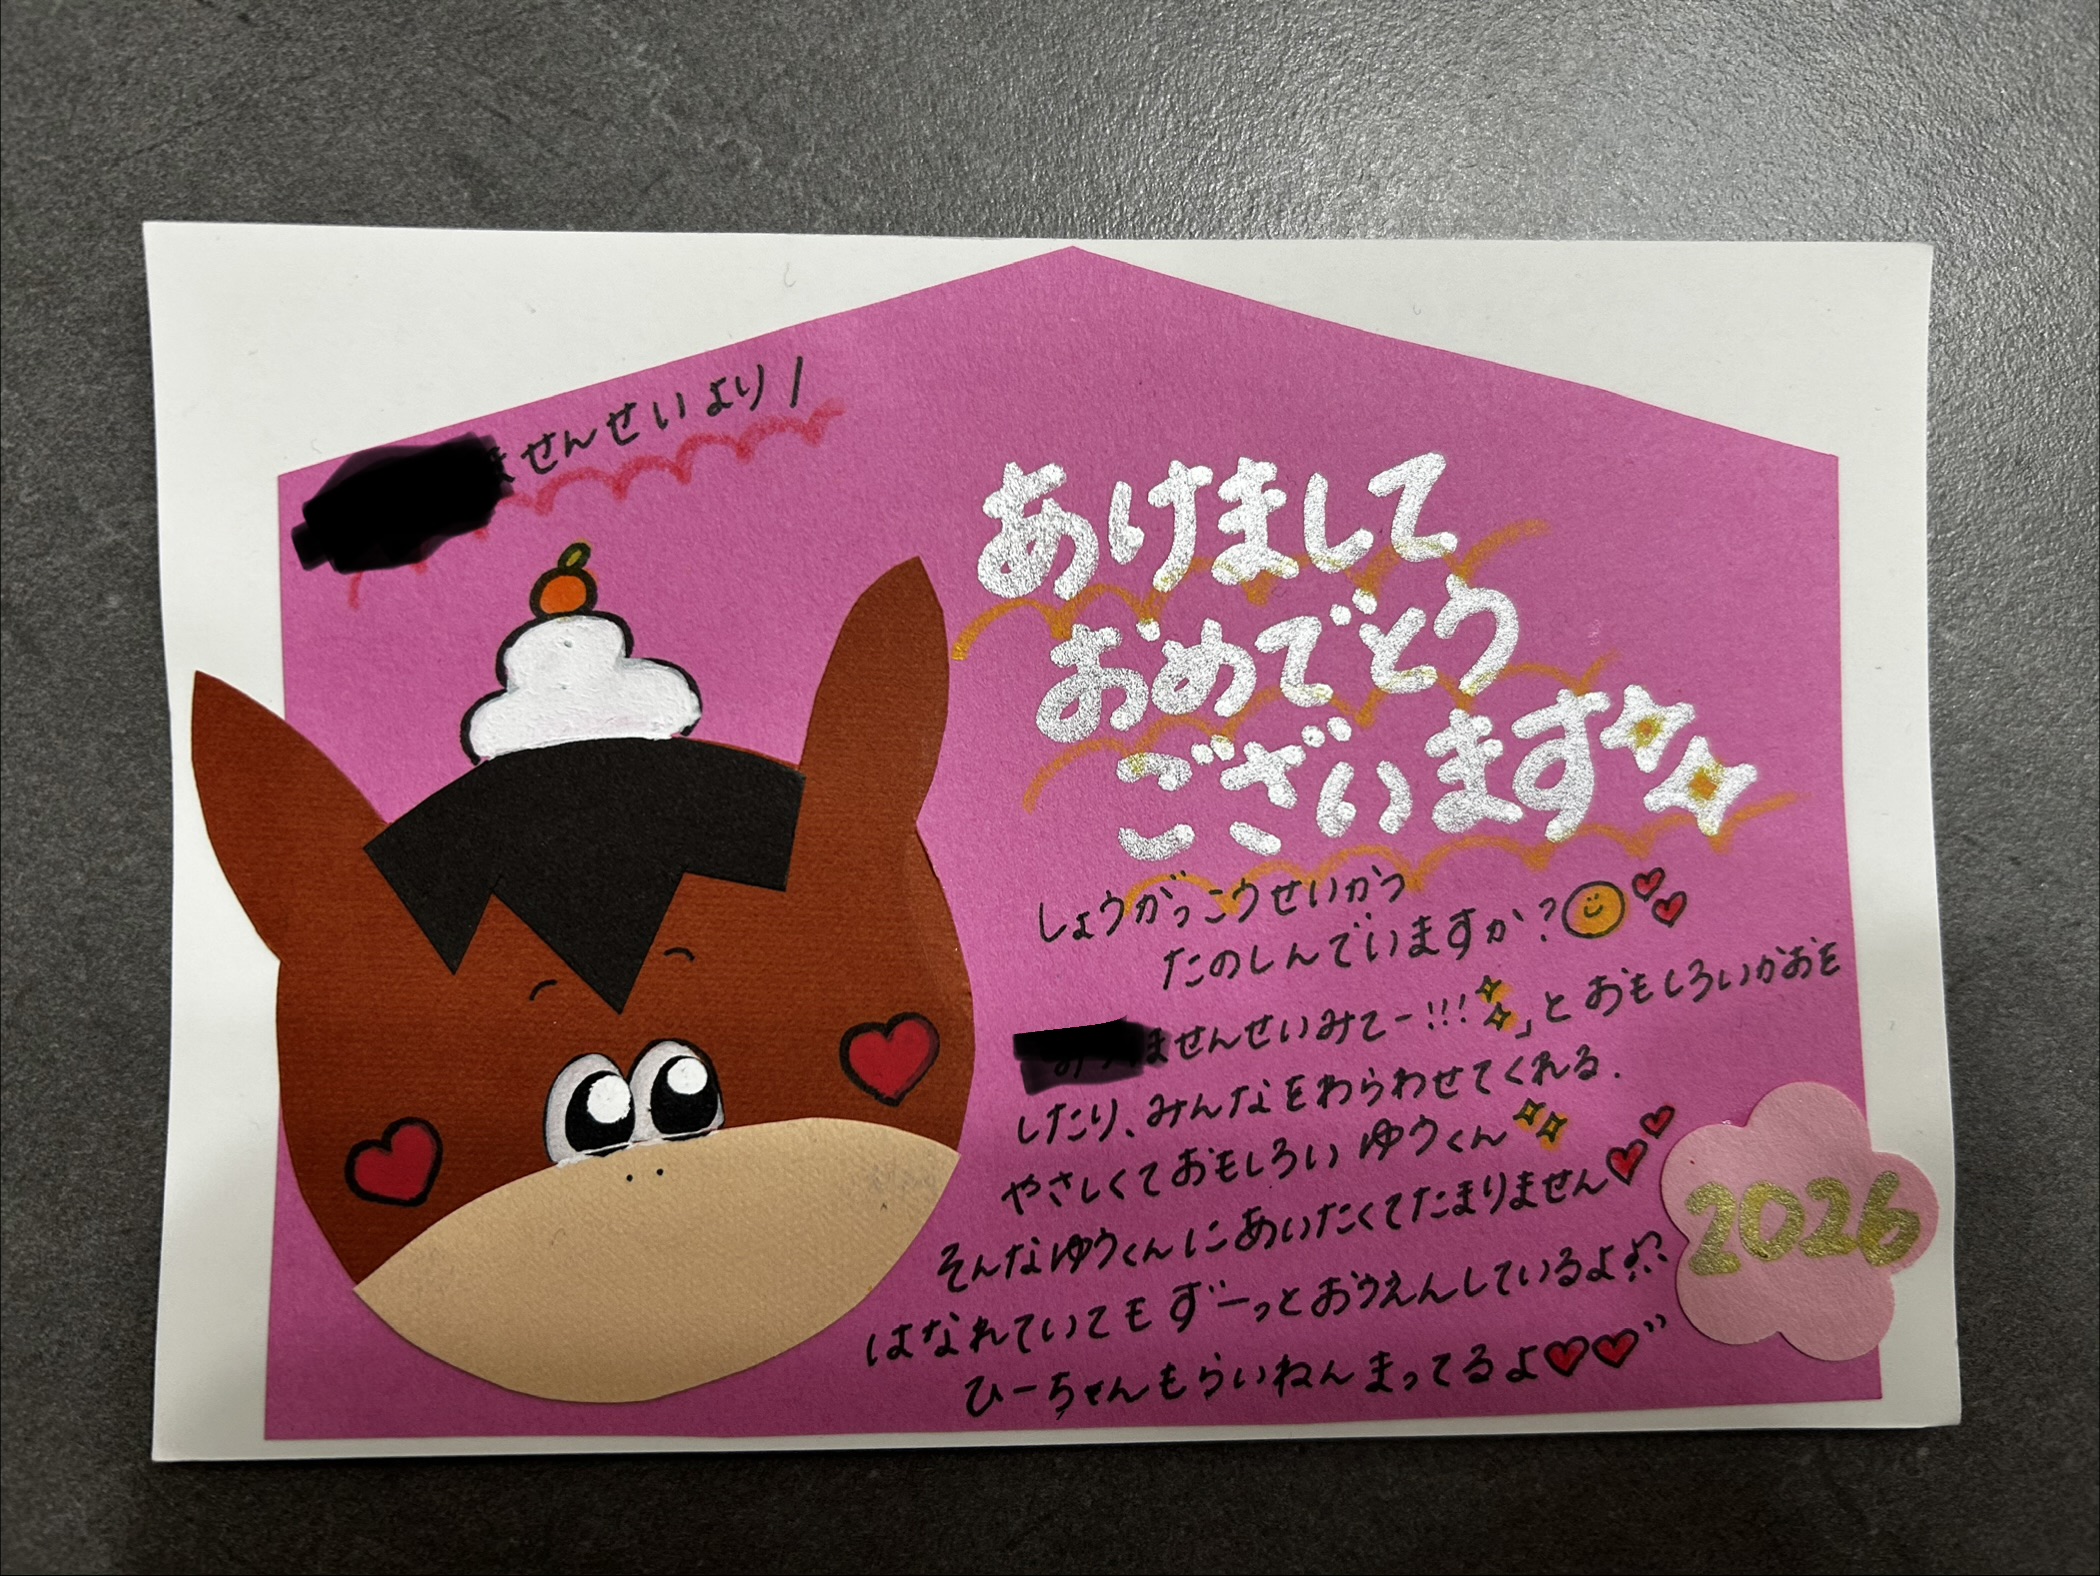 ませんせいより/
あけまして
おめでとう
ございます
しょうがっこうせいかつ
たのしんでいますか?
ませんせいみてー!!!」とおもしろいかおを
したり、みんなをわらわせてくれる.
やさしくておもしろいゆうくん
そんなゆうくんにあいたくてたまりません
はなれていてもずーっとおうえんしているよ
ひーちゃんもらいねんまってるよ
2026